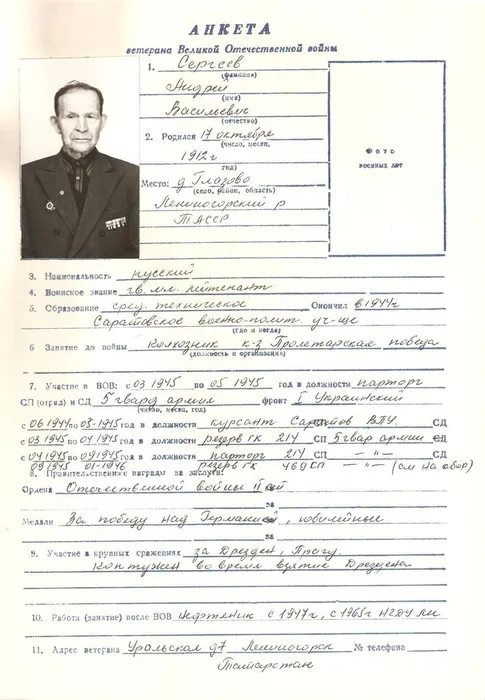 АНКЕТА
ветерана Великой Отечественной войны
1. Сергеев
(фамилия)
Андрей
(имя)
Васильевич
(отчество)
2. Родился 17 октября
(число, месяц,
1912г
год)
Место: д Глазово
(село, район, область)
Лениногорский р
ТАССР
Фото
военных лет
3. Национальность русский
4. Воинское звание гв. мл. лейтенант
5. Образование сред. техническое Окончил в 1944г
Саратовское военно-полит. уч-ще
(где и когда)
6 Занятие до войны Колхозник к-з Пролетарская победа
(должность и организация)
7. Участие в ВОВ: с 03 1945 по 05 1945 год в должности парторг
СП (отряд) и СД 5 гвард армии фронт I Украинский
(число, месяц, год)
с 06 1944 по 03-1945 год в должности курсант Саратов ВПУ. СД
с 03 1945 по 04 1945 год в должности резерв ГК 214 СП 5 гвар армии СД
с 04 1945 по 09 1945 год в должности парторг 214 СП —"— СД
09 1945 01-1946 резерв ГК 469 СП —"— (см на обор)
8. Правительственные награды за заслуги:
Ордена Отечественной войны II ст
за
Медали За победу над Германией, юбилейные
за
9. Участие в крупных сражениях за Дрезден, Прагу.
Контужен во время взятие Дрездена
10. Работа (занятие) после ВОВ Нефтяник с 1947г, с 1965г НГДУ ЛН
11. Адрес ветерана Уральская д7 Лениногорск № телефона
Татарстан